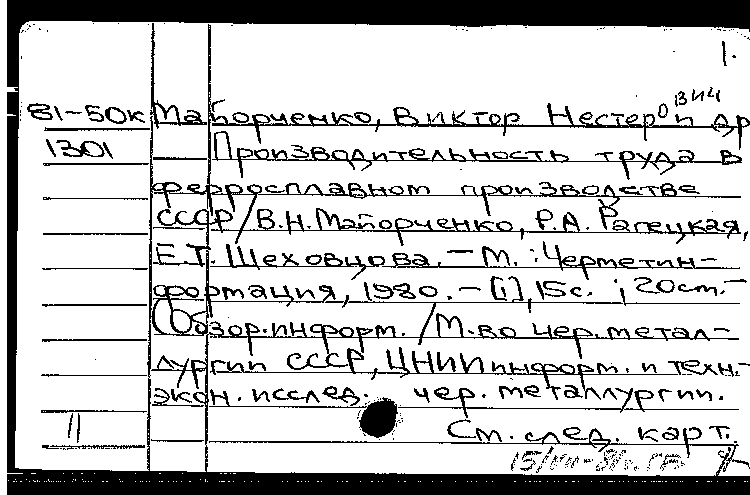 1.
81-50к Майорченко, Виктор Нестерович и др
1301 Производительность труда в
ферросплавном производстве
СССР / В.Н. Майорченко, Р.А. Рапецкая,
Е.Т. Шеховцова. – М. : Черметин-
формация, 1980. – [i], 15с. ; 20 см. –
(Обзор. информ. / М-во чер. метал-
лургии СССР, ЦНИИ информ. и техн.-
экон. исслед. чер. металлургии.
11 См. след. карт.